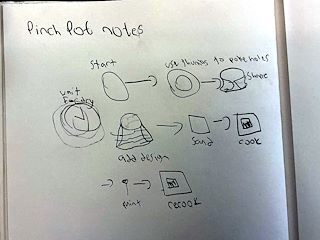 Pinch Pot notes
Start
use thumbs to poke holes
Shape
wait
add design
sand
cook
paint
recook